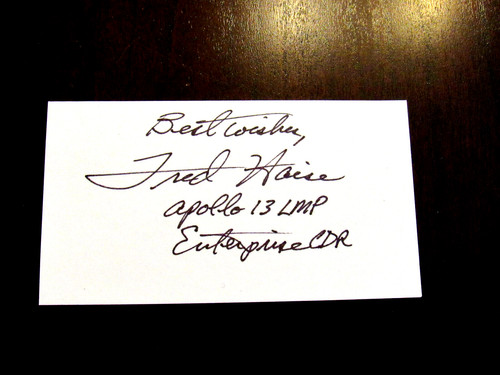 Best wishes,
Fred Haise
Apollo 13 LMP
Enterprise CDR